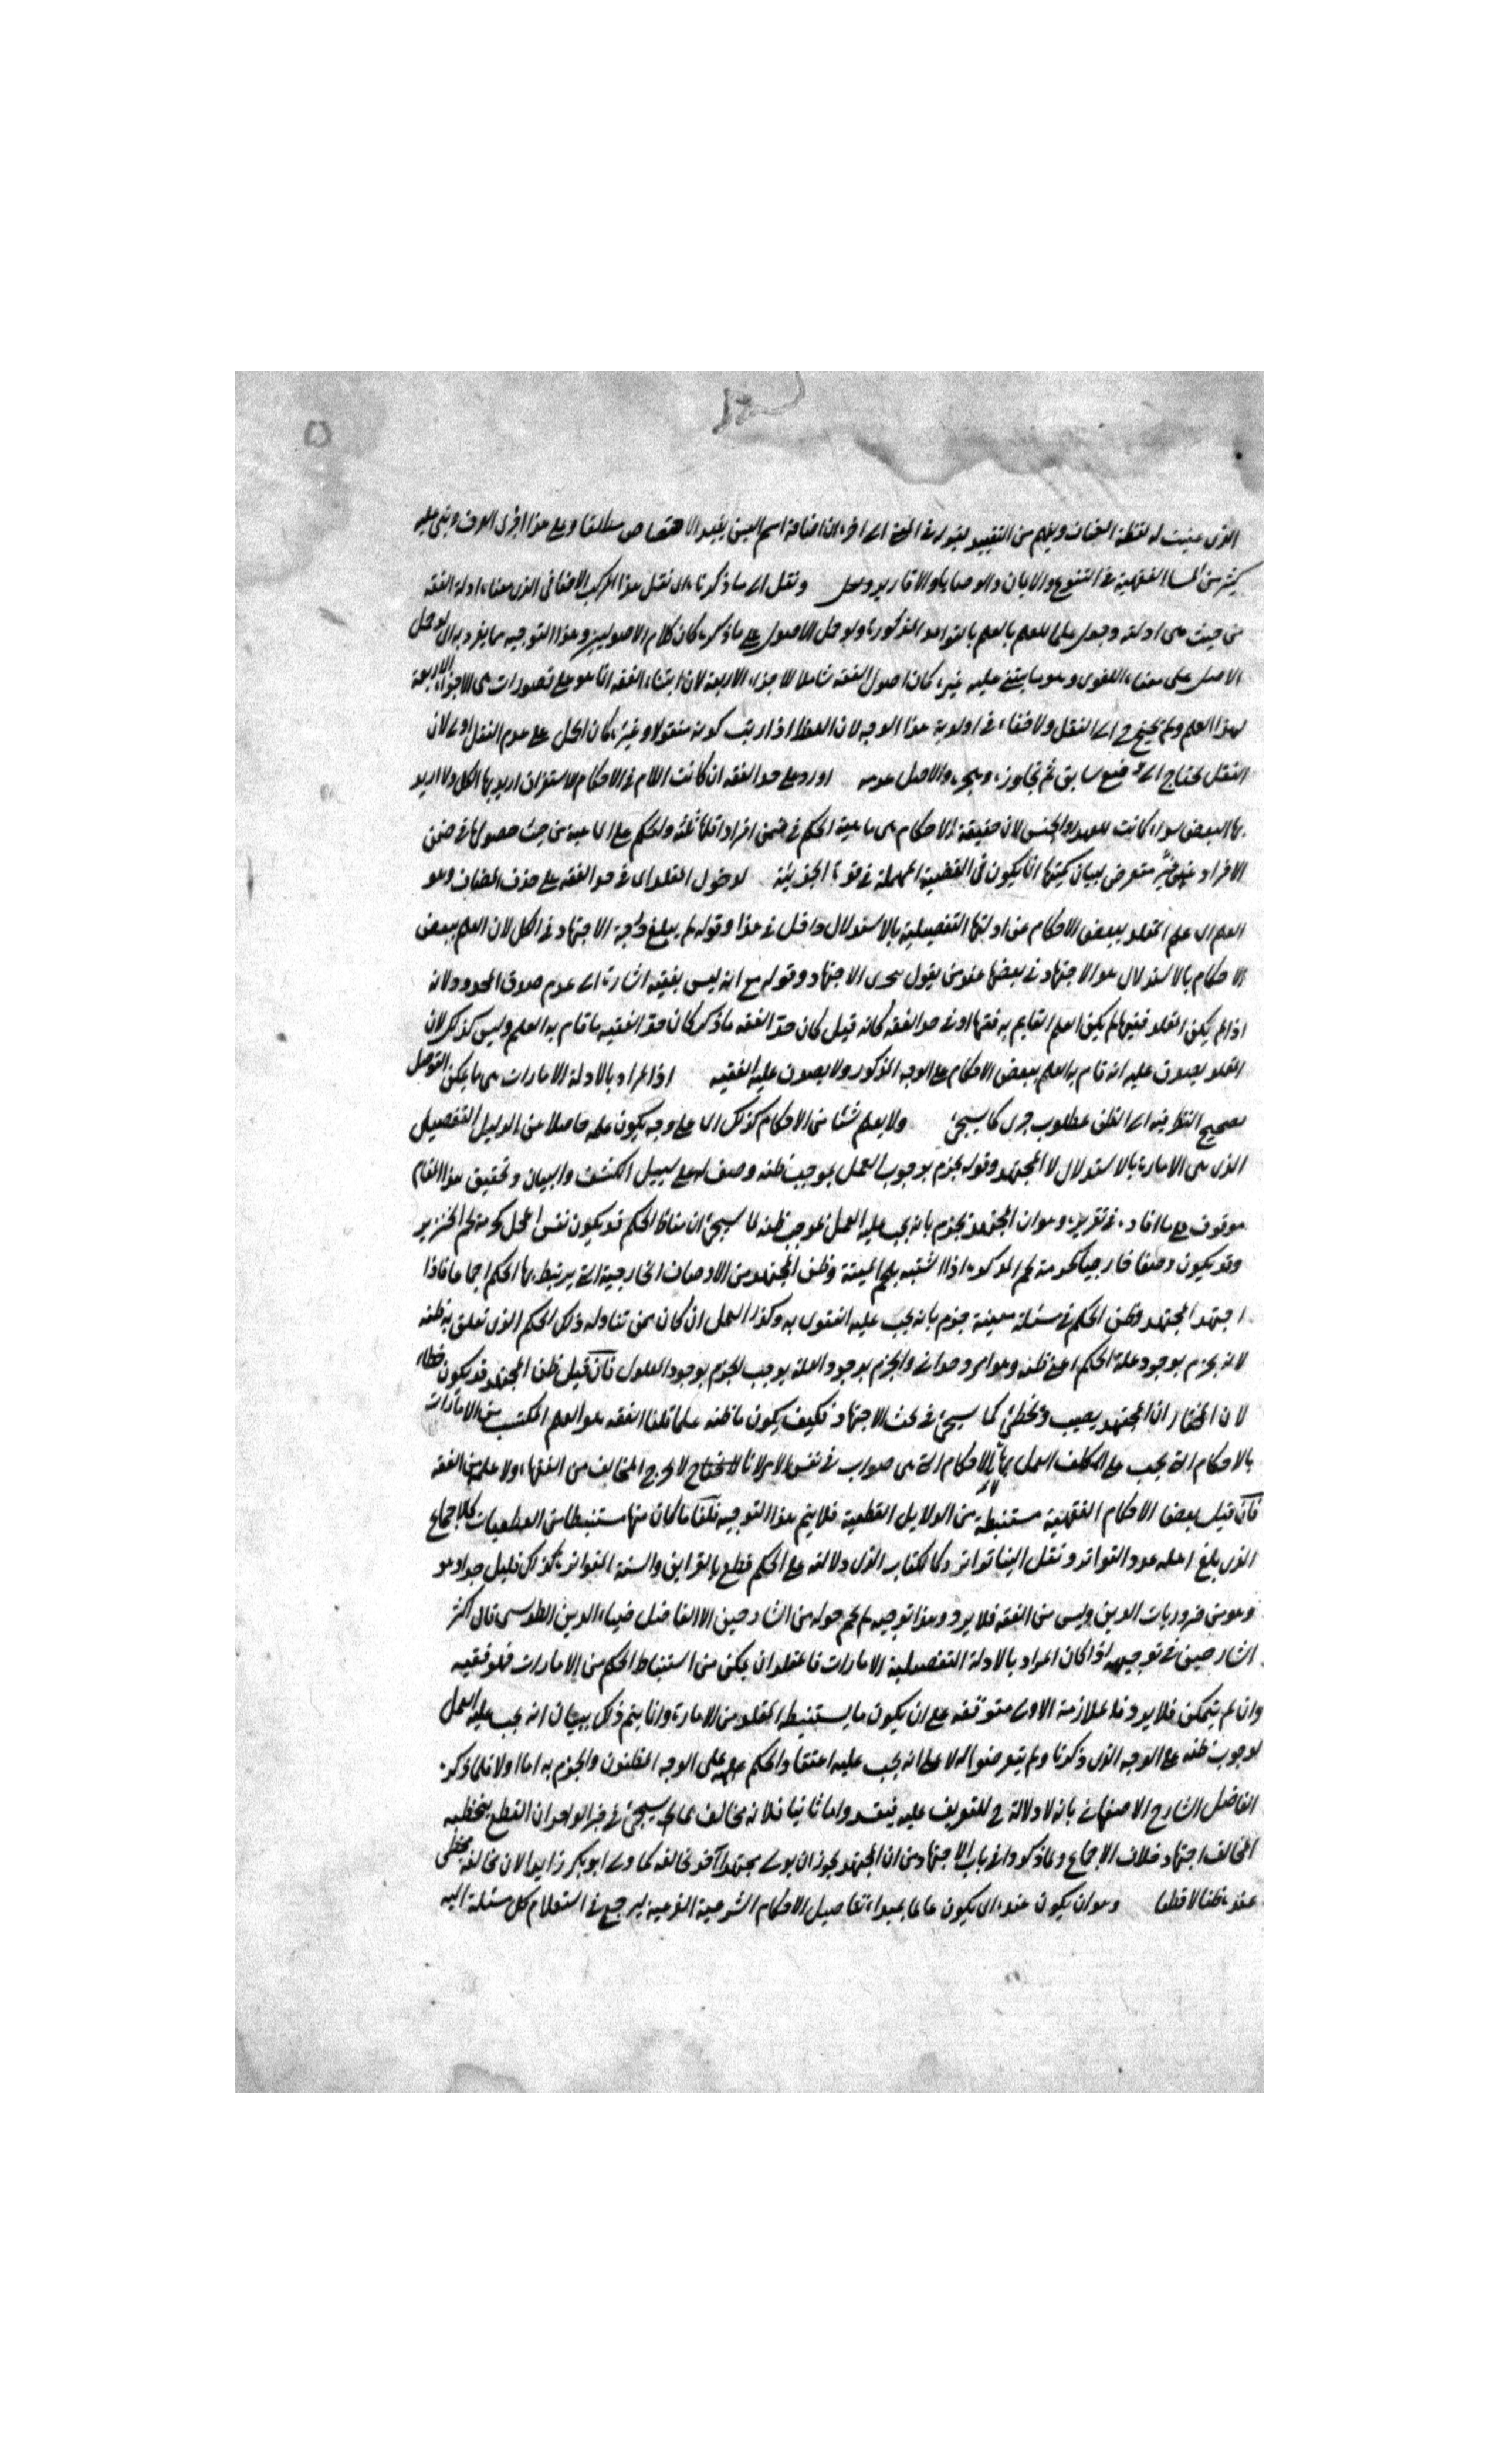 الذى عينت له لفظة المضاف ويفهم من التقييد بقوله فى المعنى الى اخره ان اضافة اسم العين يفيد الاختصاص مطلقا وعلى هذا جرى العرف وبنى عليه
كثير من المسائل الفقهية فى البيوع والايمان والوصايا والاقارير ونقل الى ما ذكرناه اى نقل هذا المركب الاضافى الذى معناه ادلة الفقه
من حيث هى ادلته وجعل علما للعلم بالعلم بالقواعد المذكورة ولو حمل الاصول على ما ذكره كان كلام الاصوليين وهذا التوجيه مما يفرد به اى لو حمل
الاصل على معناه اللغوى وهو ما يبتنى عليه غيره كان اصول الفقه شاملا للاجزاء الاربعة لان ابتناء الفقه انما هو على تصورات هى الاجزاء الاربعة
لهذا العلم ولم يحتج ح الى النقل ولا خفاء فى اولوية هذا الوجه لان اللفظ اذا ريب كونه منقولا وغيره كان الحمل على عدم النقل اولى لان
النقل يحتاج الى وضع سابق ثم تجاوزه وهجره والاصل عدمه اورد على حد الفقه ان كانت اللام فى الاحكام للاستغراق اريد بها الكل والا اريد
بها البعض سواء كانت للعهد والجنس لان حقيقة الاحكام هى ماهية الحكم فى ضمن افراد اقلها ثلثة والحكم على الماهية من حيث حصولها فى ضمن
الافراد من غير متعرض ببيان كميتها انما يكون فى القضية المهملة فى قوة الجزئية لدخول المقلد اى فى حد الفقه على حذف المضاف وهو
العلم اى علم المقلد ببعض الاحكام عن ادلتها التفصيلية بالاستدلال داخل فى هذا وقوله لم يبلغ درجة الاجتهاد فى الكل لان العلم ببعض
الاحكام بالاستدلال هو الاجتهاد فى بعضها عند من يقول بتجزى الاجتهاد وقوله مع انه ليس بفقيه اشارة الى عدم صدق المحدود لانه
اذا لم يكن المقلد فقيها لم يكن العلم القايم به فقها او فى حد الفقه كانه قيل كان حد الفقه ما ذكر كان حد الفقيه ما قام به العلم وليس كذلك لان
المقلد يصدق عليه انه قام به العلم ببعض الاحكام على الوجه المذكور ولا يصدق عليه الفقيه اذ المراد بالادلة الامارات هى ما يمكن التوصل
بصحيح النظر فيه الى الظن بمطلوب خبرى كما سيجئ ولا يعلم شئا من الاحكام كذلك اى على وجه يكون علمه حاصلا من الدليل التفصيلى
الذى هى الامارة بالاستدلال الا المجتهد وقوله يجزم بوجوب العمل بموجب ظنه وصف له على سبيل الكشف والبيان وتحقيق هذا المقام
موقوف على ما افاده فى تقريره وهو ان المجتهد يجزم بانه يجب عليه العمل بموجب ظنه لما سيجئ ان مناط الحكم قد يكون نفس المحل كحرمة لحم الخنزير
وقد يكون وصفا خارجيا كحرمة لحم المذكى اذا اشتبه بلحم الميتة وظن المجتهد من الاوصاف الخارجية التى يرتبط بها الحكم اجماعا فاذا
اجتهد المجتهد وظن الحكم فى مسئلة معينة جزم بانه يجب عليه الفتوى به وكذا العمل ان كان ممن تناوله ذلك الحكم الذى تعلق به ظنه
لانه يجزم بوجود علة الحكم اعنى ظنه وهو امر وجدانى والجزم بوجود العلة يوجب الجزم بوجود المعلول فان قيل ظن المجتهد قد يكون خطاء
لان المختار ان المجتهد يصيب ويخطئ كما سيجئ فى بحث الاجتهاد فكيف يكون ما ظنه علما قلنا الفقه هو العلم المكتسب من الامارات
بالاحكام التى يجب على المكلف العمل بها لا الاحكام التى هى صواب فى نفس الامر لخروج المخالف من الفقهاء ولا علمه من الفقه
فان قيل بعض الاحكام الفقهية مستنبطة من الدلايل القطعية فلا يتم هذا التوجيه قلنا ما كان منها مستنبطا من القطعيات كالاجماع
الذى بلغ اهله عدد التواتر ونقل الينا تواترا وكالكتاب الذى دلالته على الحكم قطع بالقراين والسنة المتواترة كذلك قليل جدا وهو
وهو من ضروريات الدين وليس من الفقه فلا يرد وهذا توجيه لم يحم حوله من الشارحين الا الفاضل ضياء الدين الطوسى فان اكثر
الشارحين فى توجيهه اذا كان المراد بالادلة التفصيلية الامارات فالمقلد ان يمكن من استنباط الحكم من الامارات فهو فقيه
وان لم يتمكن فلا يرد فالملازمة الاولى متوقفة على ان يكون ما يستنبطه المقلد من الامارة وانما يتم ذلك ببيان انه يجب عليه العمل
بوجوب ظنه على الوجه الذى ذكرنا ولم يتعرضوا له الا على انه يجب عليه اعتقاد الحكم على الوجه المظنون والجزم به اما اولا فلما ذكره
الفاضل الشارح الاصفهانى بانه لا دلالة ح للتعريف عليه فيفسد واما ثانيا فلانه مخالف لما سيجئ فى خبر الواحد ان القطع بتخطية
المخالف اجتهاد خلاف الاجماع ولما ذكروا فى باب الاجتهاد من ان المجتهد يجوز ان يولى مجتهدا اخر يخالفه كما ولى ابو بكر زايدا لان مخالفه مخطى
عنده ظنا لا قطعا وهو ان يكون عنده اى يكون عالما بمبداء تفاصيل الاحكام الشرعية الفرعية ليرجع فى استعلام كل مسئلة اليه